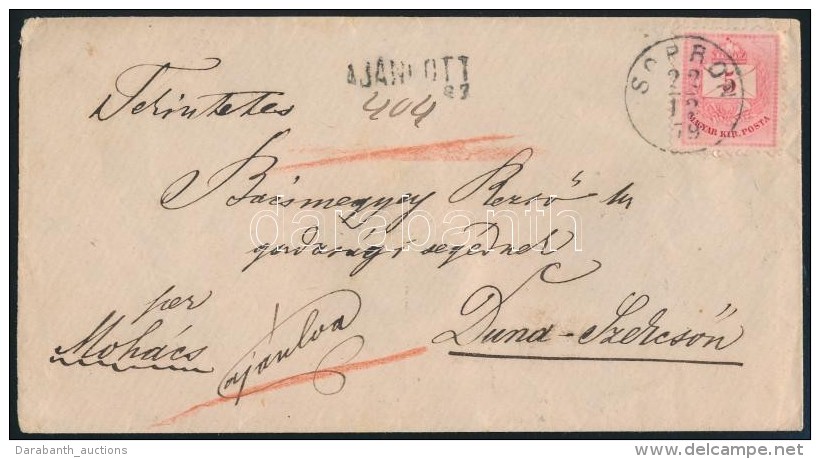 AJÁNLOTT
Tekintetes 404
SOPRON
22
12
79
5
MAGYAR KIR. POSTA
Bácsmegyey Rezső úr
gazdasági segédnek
darabanth
per
Mohács
ajánlva
Duna-Szekcsőn
Darabanth_auctions
delcampe.net